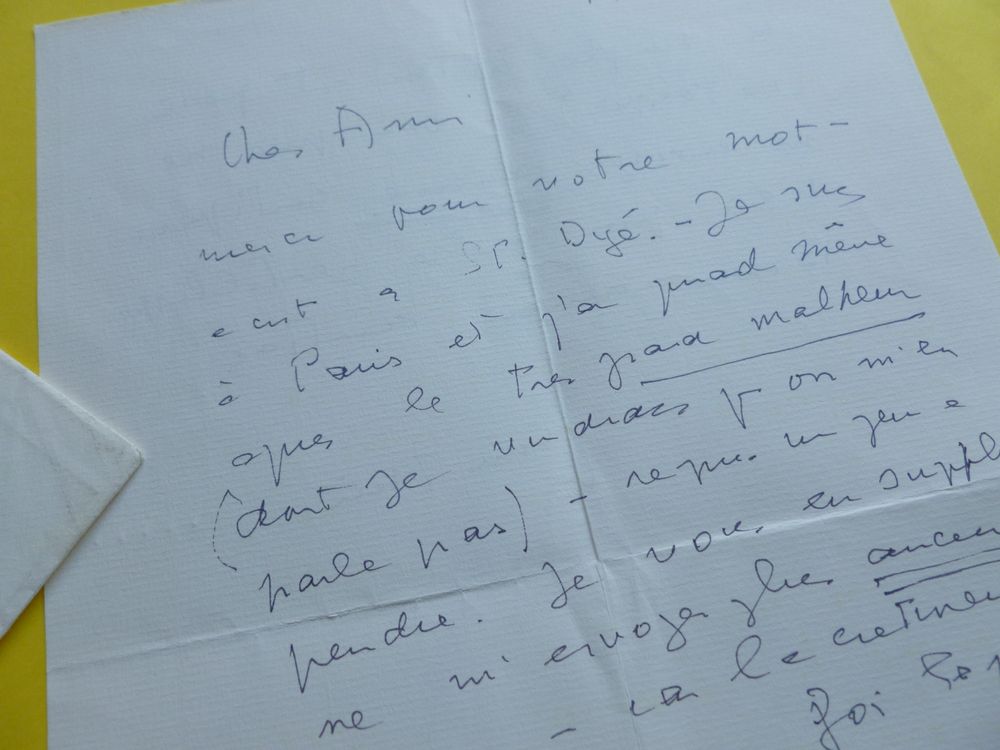 Cher Ami
merci pour votre mot -
écrit à St. Dyé. - Je suis
à Paris et j'ai quand même
après le très grand malheur
(dont je voudrais qu'on m'en
parle pas) - repris un peu à
pendre. Je vous en suppl
ne m'envoyez plus aucun
- car le
foi